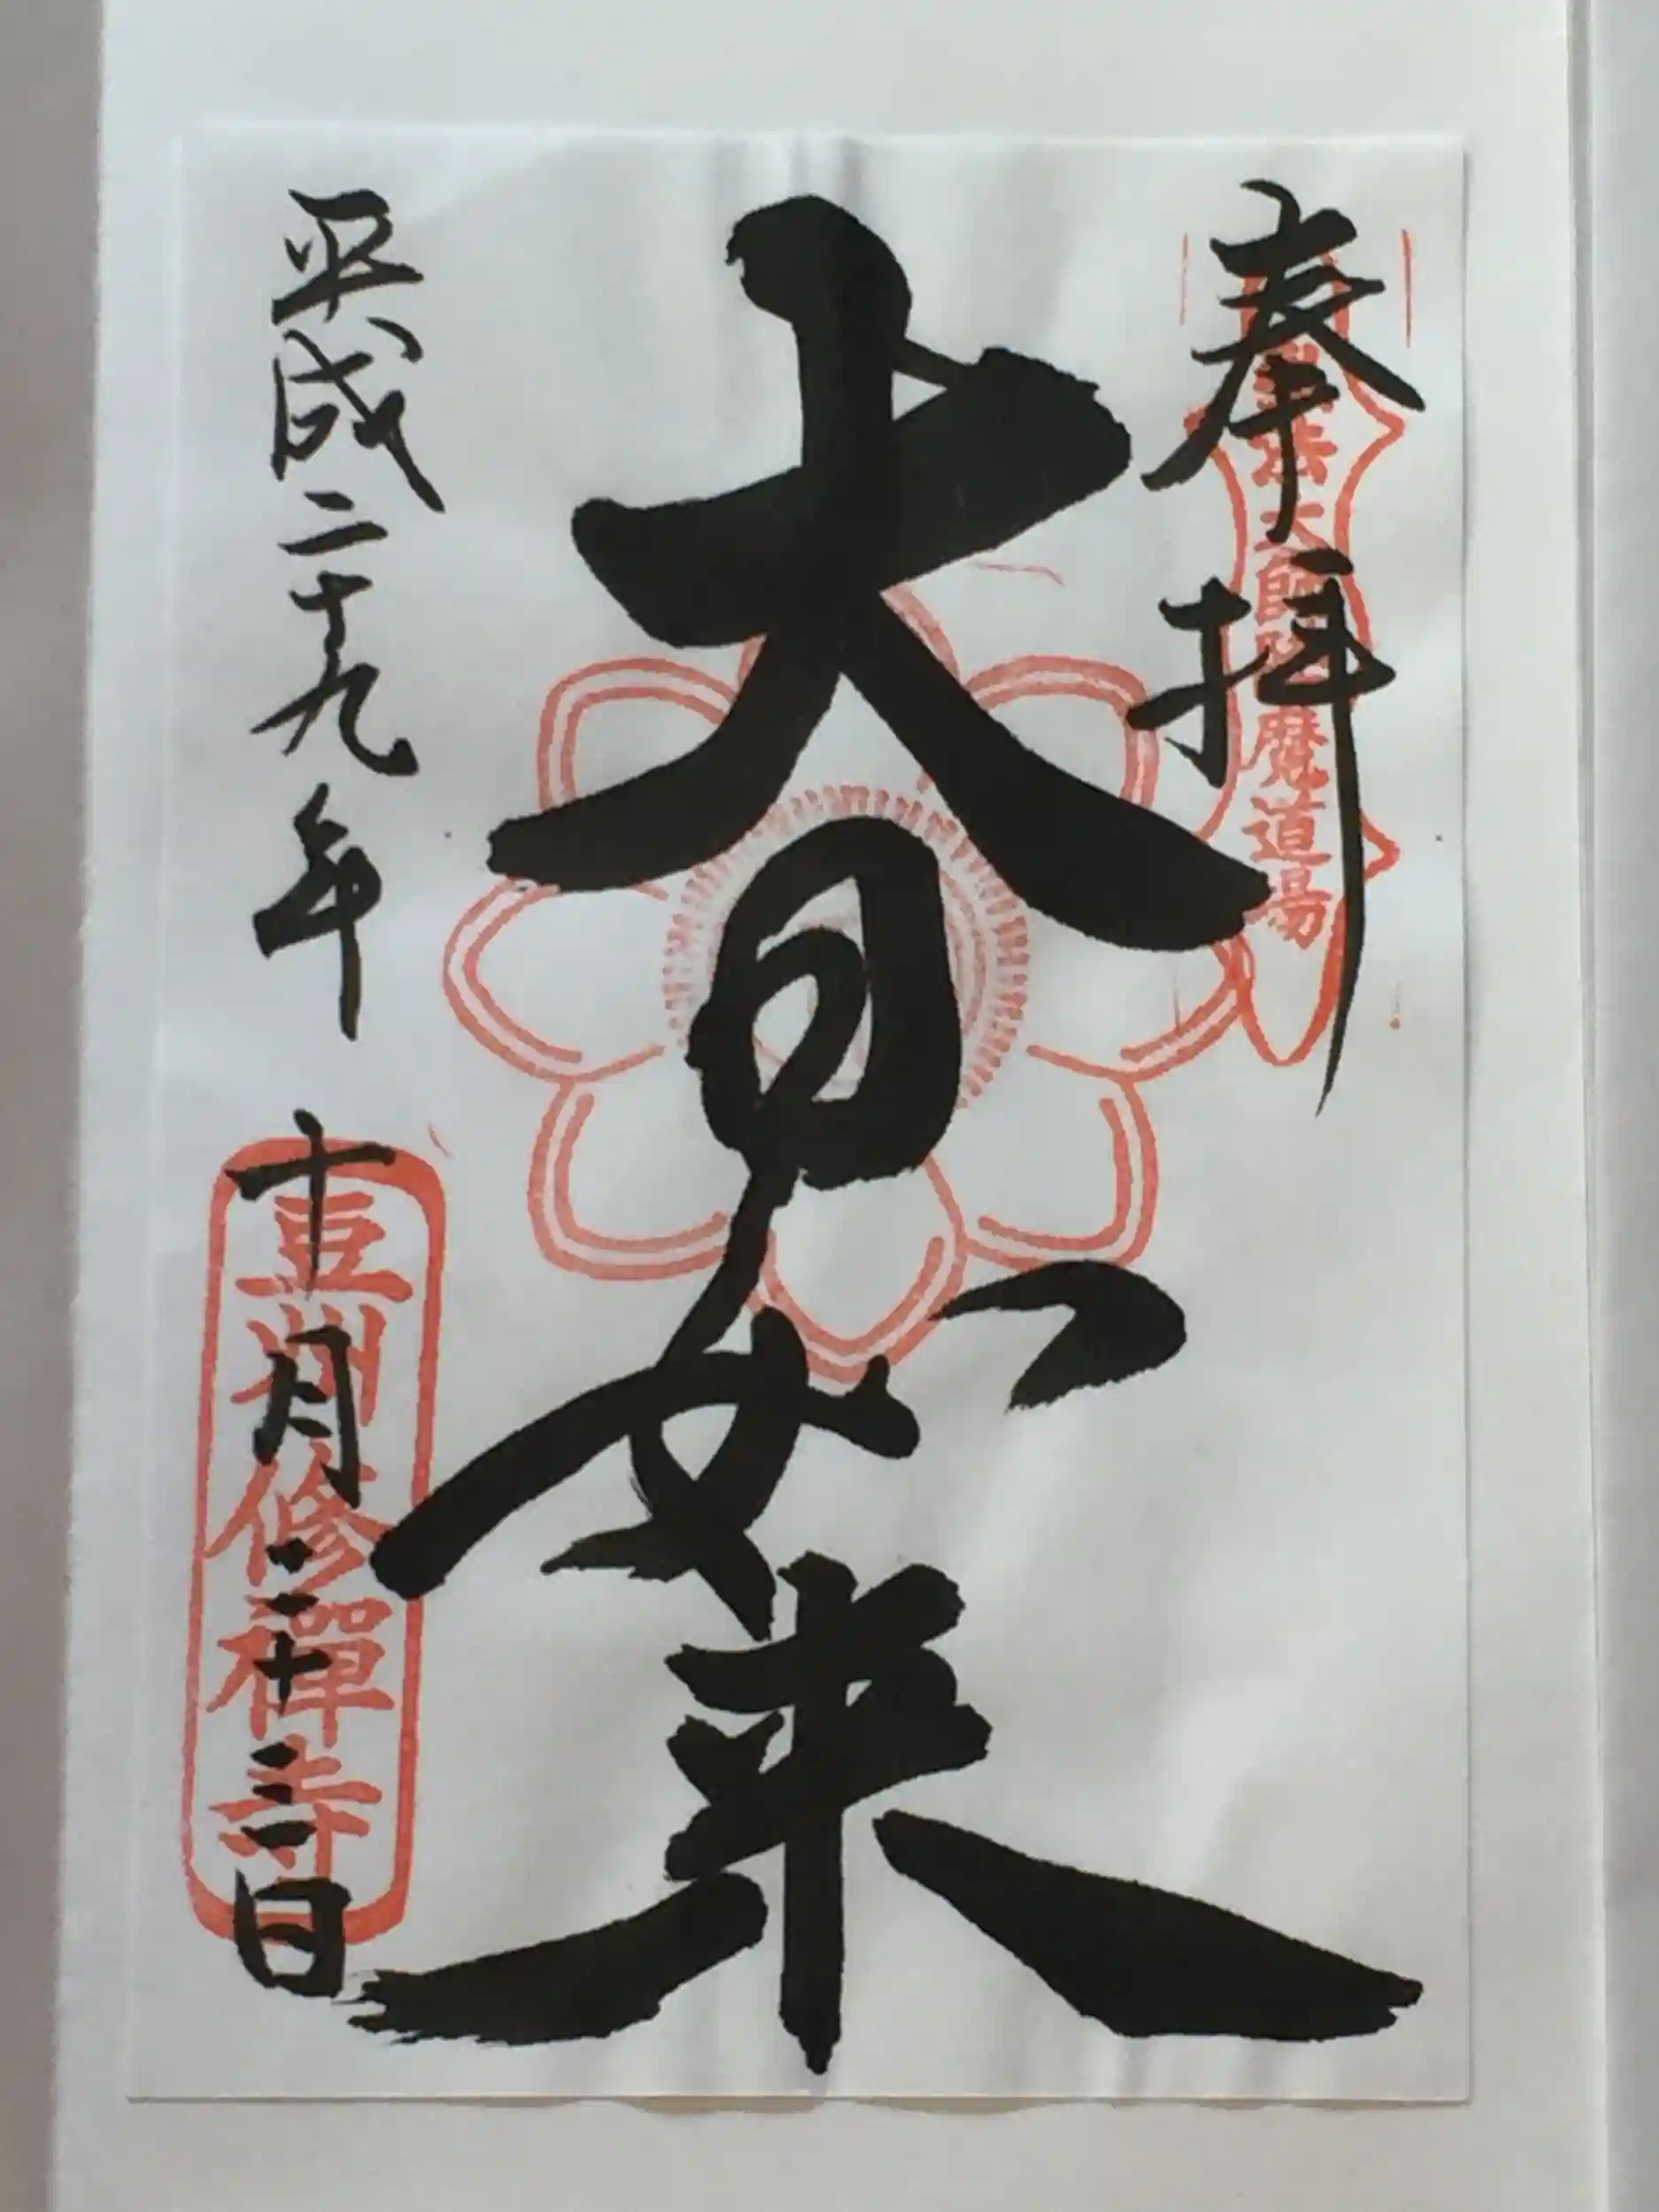 奉拝
弘法大師降魔道場
大日如来
平成二十九年十月二十三日
豆州修禪寺